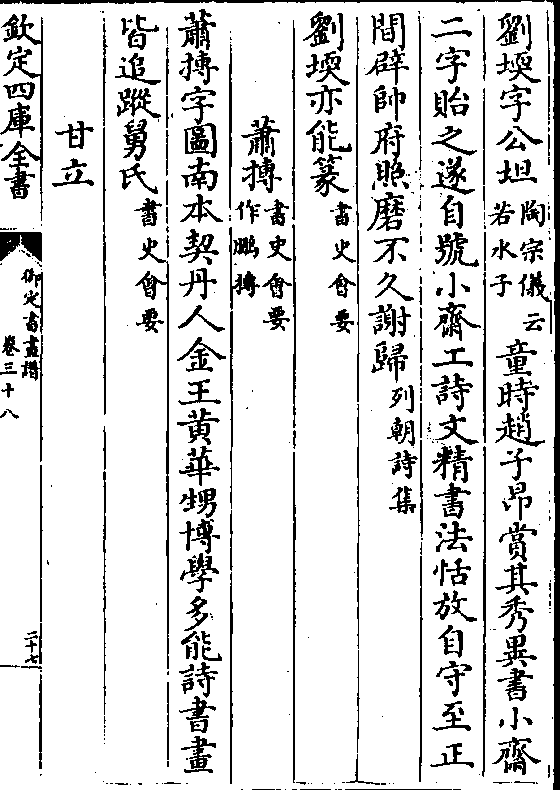 劉堧字公坦陶宗儀云若水子童時趙子昂賞其秀異書小齋
二字貽之遂自號小齋工詩文精書法恬放自守至正
間辟帥府照磨不久謝歸列朝詩集
劉堧亦能篆書史會要
蕭摶書史會要作鵬摶
蕭摶字圖南本契丹人金王黃華甥博學多能詩書畫
皆追蹤舅氏書史會要
甘立
欽定四庫全書
御定書畫譜
卷三十八
二十七